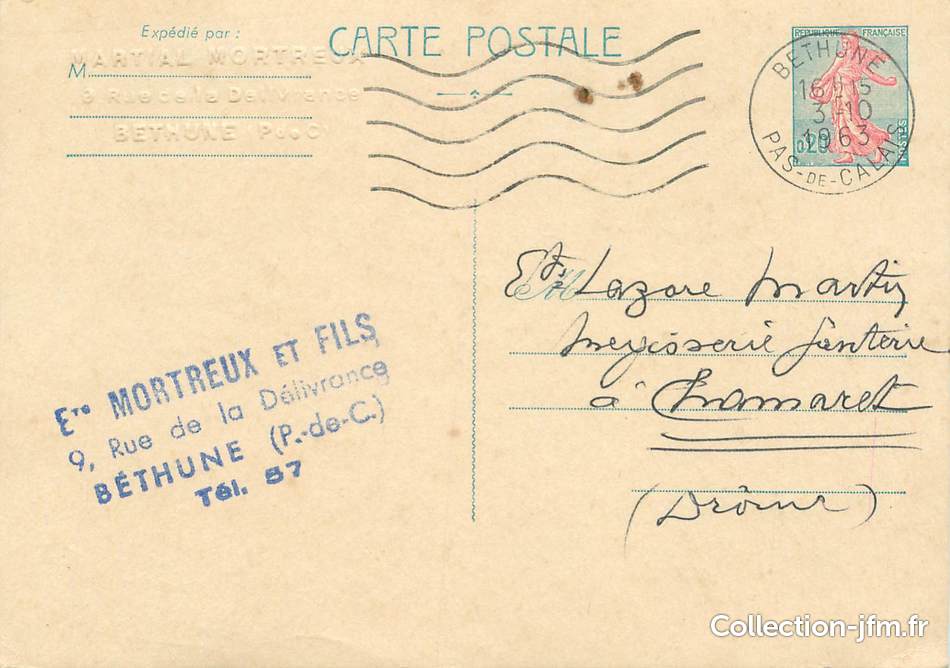 Expédié par :
CARTE POSTALE
RÉPUBLIQUE FRANÇAISE
M. MARTIAL MORTREUX
9 Rue de la Délivrance
BETHUNE P de C
BETHUNE
16H15
3-10
1963
PAS-DE-CALAIS
0,20
POSTES
Ets Lazare Martin
Megisserie Ganterie
à Chamaret
(Drôme)
Ets MORTREUX ET FILS
9, Rue de la Délivrance
BÉTHUNE (P.-de-C.)
Tél. 57
Collection-jfm.fr